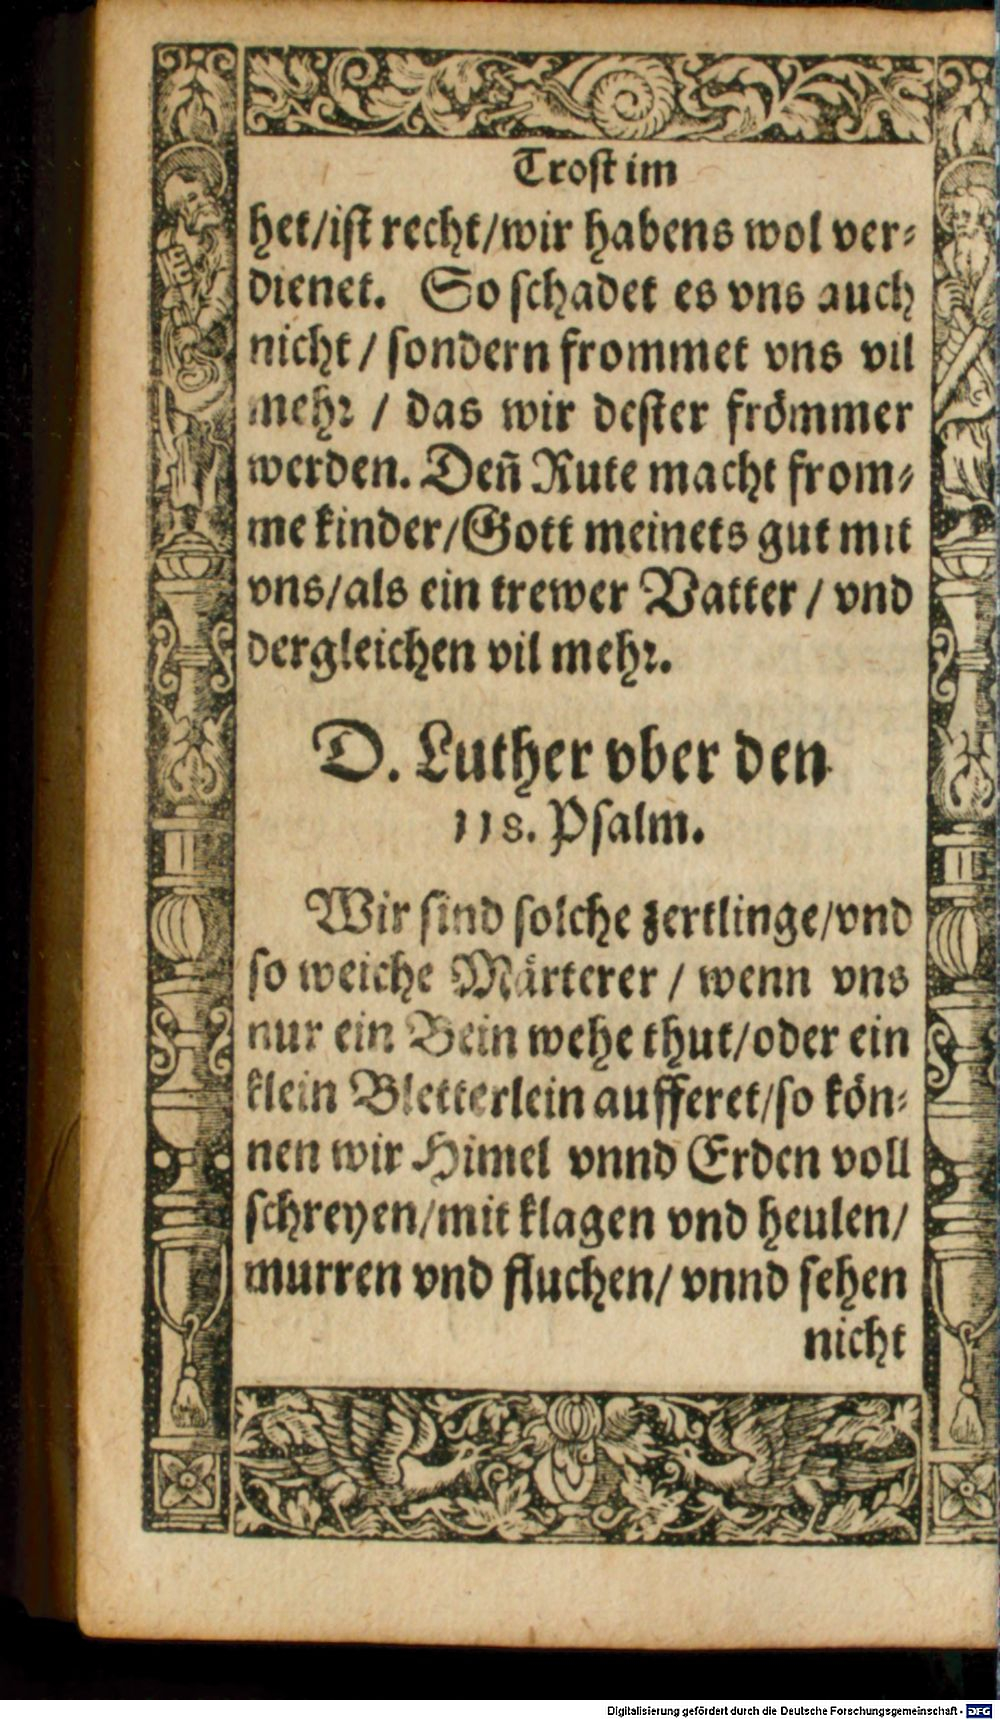 Trost im
het/ist recht/wir habens wol ver-
dienet. So schadet es vns auch
nicht / sondern frommet vns vil
mehr / das wir dester frömmer
werden. Deñ Rute macht from-
me kinder/Gott meinets gut mit
vns/als ein trewer Vatter / vnd
dergleichen vil mehr.
D. Luther vber den
118. Psalm.
Wir sind solche zertlinge/vnd
so weiche Märterer / wenn vns
nur ein Bein wehe thut/oder ein
klein Bletterlein aufferet/so kön-
nen wir Himel vnnd Erden voll
schreyen/mit klagen vnd heulen/
murren vnd fluchen/ vnnd sehen
nicht
Digitalisierung gefördert durch die Deutsche Forschungsgemeinschaft - DFG